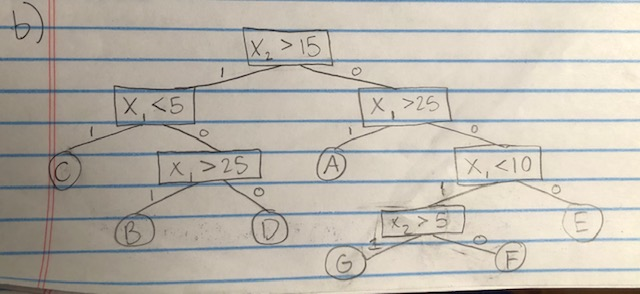 b)
X₂ > 15
1 0
X₁ < 5 X₁ > 25
1 0 1 0
C X₁ > 25 A X₁ < 10
1 0 1 0
B D X₂ > 5 E
1 0
G F